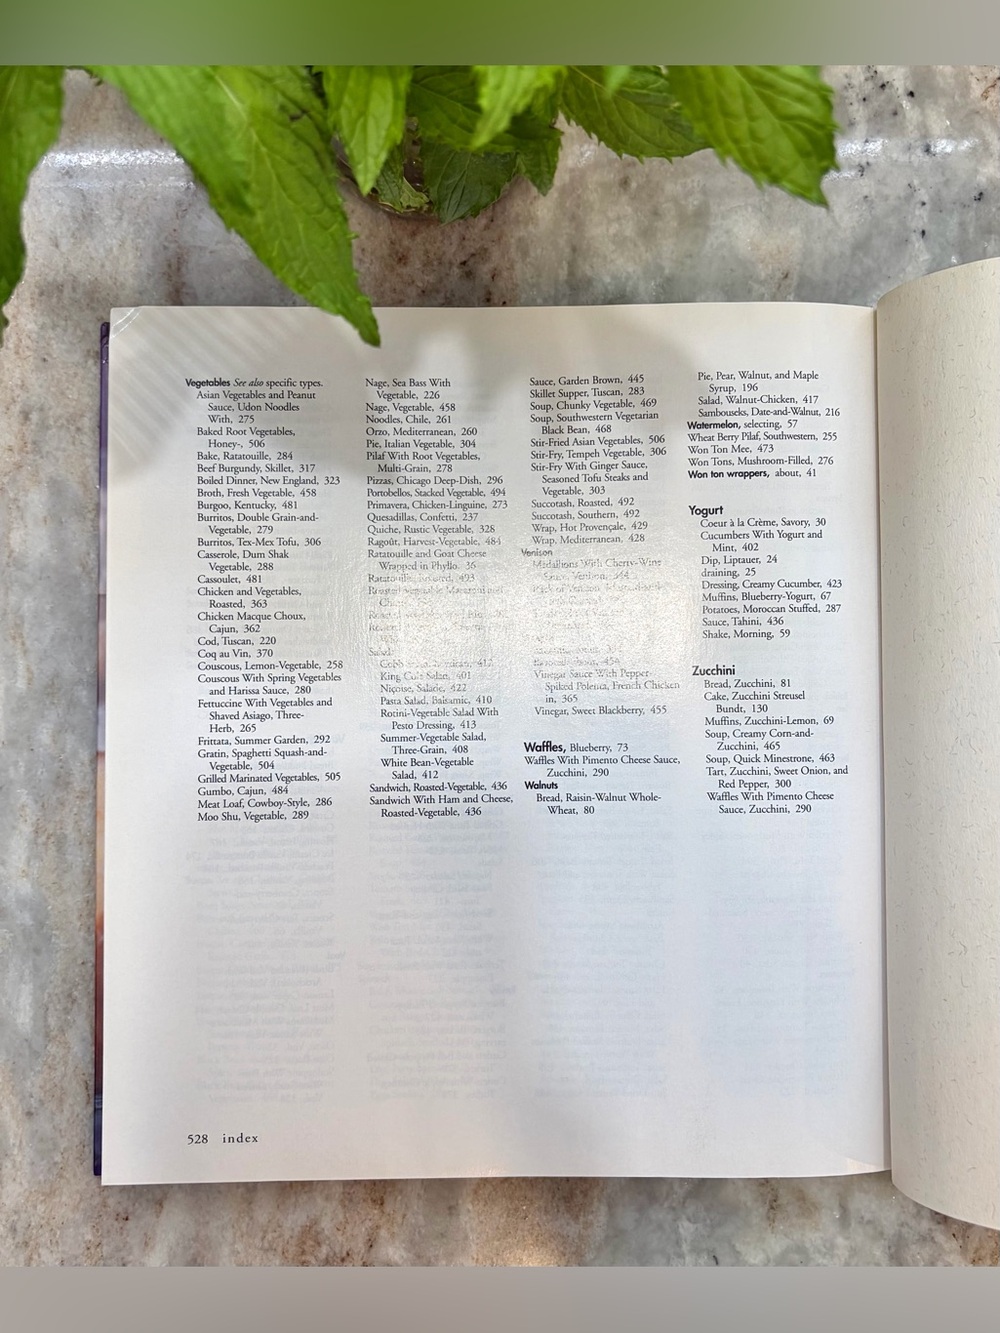 Vegetables See also specific types.
Asian Vegetables and Peanut
Sauce, Udon Noodles
With, 275
Baked Root Vegetables,
Honey-, 506
Bake, Ratatouille, 284
Beef Burgundy, Skillet, 317
Boiled Dinner, New England, 323
Broth, Fresh Vegetable, 458
Burgoo, Kentucky, 481
Burritos, Double Grain-and-
Vegetable, 279
Burritos, Tex-Mex Tofu, 306
Casserole, Dum Shak
Vegetable, 288
Cassoulet, 481
Chicken and Vegetables,
Roasted, 363
Chicken Macque Choux,
Cajun, 362
Cod, Tuscan, 220
Coq au Vin, 370
Couscous, Lemon-Vegetable, 258
Couscous With Spring Vegetables
and Harissa Sauce, 280
Fettuccine With Vegetables and
Shaved Asiago, Three-
Herb, 265
Frittata, Summer Garden, 292
Gratin, Spaghetti Squash-and-
Vegetable, 504
Grilled Marinated Vegetables, 505
Gumbo, Cajun, 484
Meat Loaf, Cowboy-Style, 286
Moo Shu, Vegetable, 289
Nage, Sea Bass With
Vegetable, 226
Nage, Vegetable, 458
Noodles, Chile, 261
Orzo, Mediterranean, 260
Pie, Italian Vegetable, 304
Pilaf With Root Vegetables,
Multi-Grain, 278
Pizzas, Chicago Deep-Dish, 296
Portobellos, Stacked Vegetable, 494
Primavera, Chicken-Linguine, 273
Quesadillas, Confetti, 237
Quiche, Rustic Vegetable, 328
Ragoût, Harvest-Vegetable, 484
Ratatouille and Goat Cheese
Wrapped in Phyllo, 36
Ratatouille, Roasted, 493
Roasted Vegetable Macaroni and
Salad
Cobb 412
King Cole Salad, 401
Niçoise, Salade, 422
Pasta Salad, Balsamic, 410
Rotini-Vegetable Salad With
Pesto Dressing, 413
Summer-Vegetable Salad,
Three-Grain, 408
White Bean-Vegetable
Salad, 412
Sandwich, Roasted-Vegetable, 436
Sandwich With Ham and Cheese,
Roasted-Vegetable, 436
Sauce, Garden Brown, 445
Skillet Supper, Tuscan, 283
Soup, Chunky Vegetable, 469
Soup, Southwestern Vegetarian
Black Bean, 468
Stir-Fried Asian Vegetables, 506
Stir-Fry, Tempeh Vegetable, 306
Stir-Fry With Ginger Sauce,
Seasoned Tofu Steaks and
Vegetable, 303
Succotash, Roasted, 492
Succotash, Southern, 492
Wrap, Hot Provençale, 429
Wrap, Mediterranean, 428
Venison
Medallions With Cherry-Wine
Sauce, Venison, 344
Vinegar Sauce With Pepper-
Spiked Polenta, French Chicken
in, 365
Vinegar, Sweet Blackberry, 455
Waffles, Blueberry, 73
Waffles With Pimento Cheese Sauce,
Zucchini, 290
Walnuts
Bread, Raisin-Walnut Whole-
Wheat, 80
Pie, Pear, Walnut, and Maple
Syrup, 196
Salad, Walnut-Chicken, 417
Sambouseks, Date-and-Walnut, 216
Watermelon, selecting, 57
Wheat Berry Pilaf, Southwestern, 255
Won Ton Mee, 473
Won Tons, Mushroom-Filled, 276
Won ton wrappers, about, 41
Yogurt
Coeur à la Crème, Savory, 30
Cucumbers With Yogurt and
Mint, 402
Dip, Liptauer, 24
draining, 25
Dressing, Creamy Cucumber, 423
Muffins, Blueberry-Yogurt, 67
Potatoes, Moroccan Stuffed, 287
Sauce, Tahini, 436
Shake, Morning, 59
Zucchini
Bread, Zucchini, 81
Cake, Zucchini Streusel
Bundt, 130
Muffins, Zucchini-Lemon, 69
Soup, Creamy Corn-and-
Zucchini, 465
Soup, Quick Minestrone, 463
Tart, Zucchini, Sweet Onion, and
Red Pepper, 300
Waffles With Pimento Cheese
Sauce, Zucchini, 290
528 index